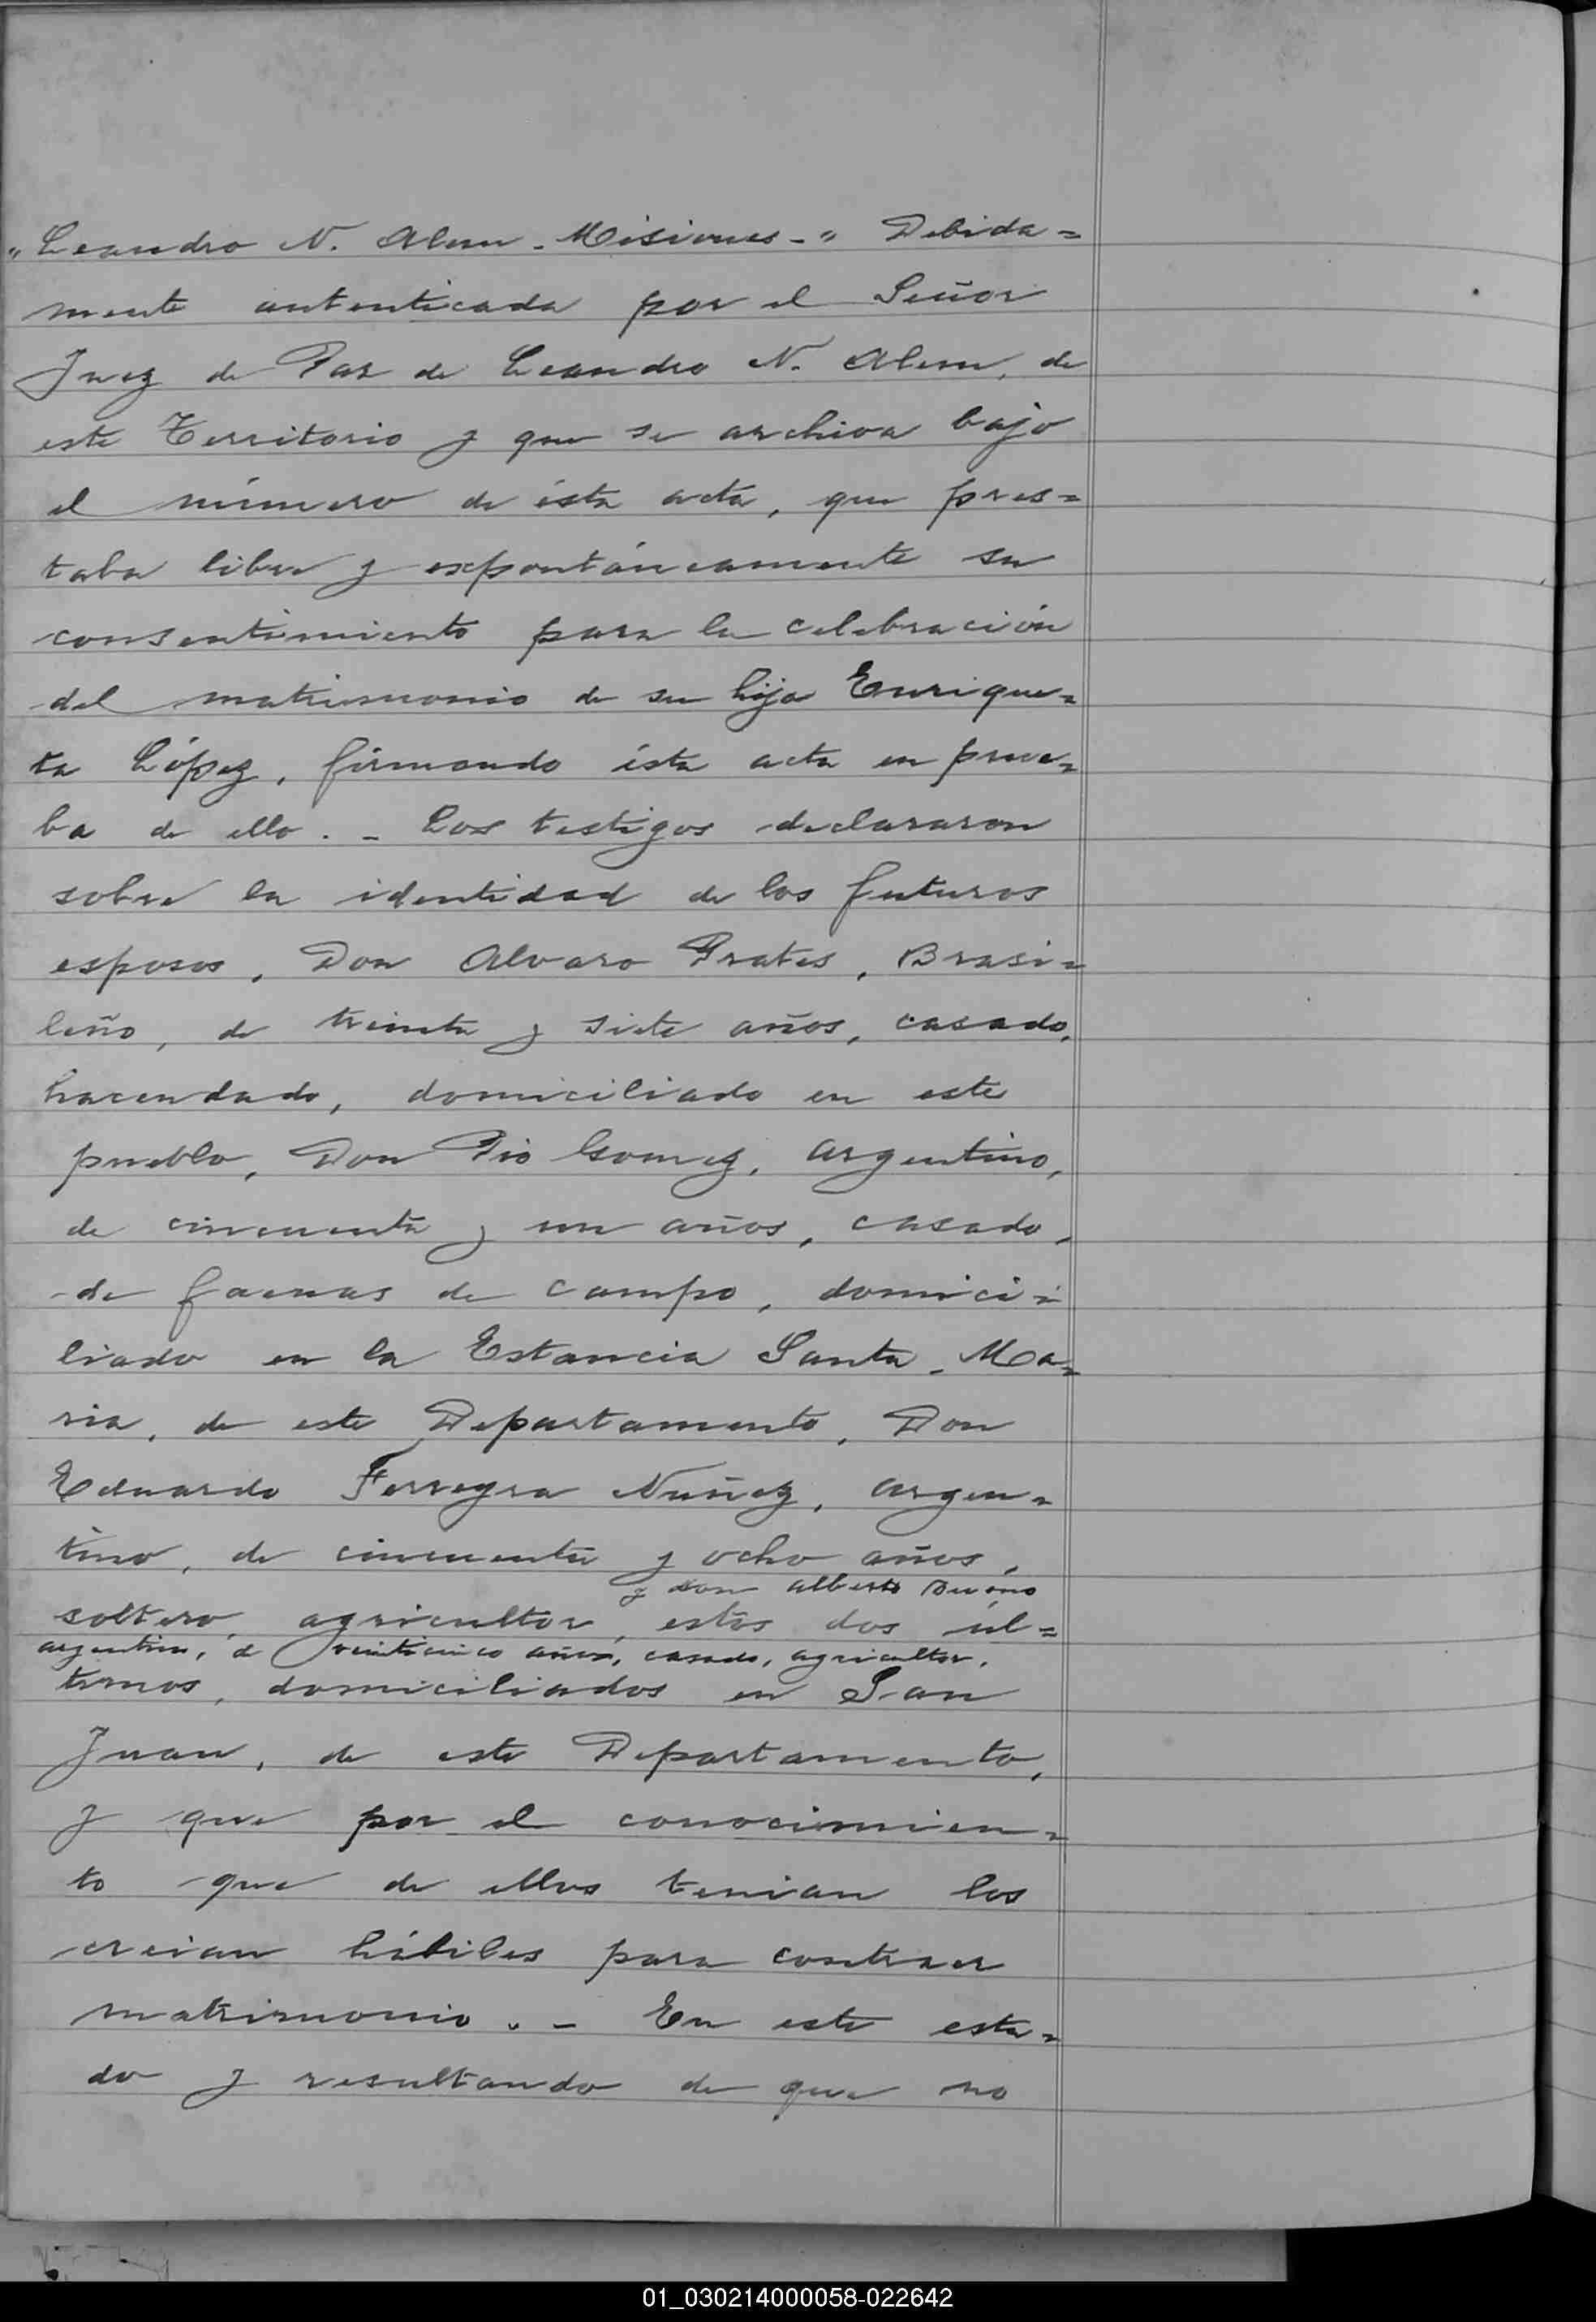 "Leandro N. Alem - Misiones - " Debida=
mente autenticada por el Señor
Juez de Paz de Leandro N. Alem, de
este Territorio y que se archiva bajo
el número de ésta acta, que pres=
taba libre y expontáneamente su
consentimiento para la celebración
del matrimonio de su hija Enrique=
ta López, firmando ésta acta en prue=
ba de ello. - Los testigos declararon
sobre la identidad de los futuros
esposos, Don Alvaro Prates, Brasi=
leño, de treinta y siete años, casado,
hacendado, domiciliado en este
pueblo, Don Pio Gomez, argentino,
de cincuenta y un años, casado,
de faenas de campo, domici=
liado en la Estancia Santa Ma=
ria, de este Departamento, Don
Eduardo Ferreyra Nuñez, argen=
tino, de cincuenta y ocho años,
y don Alberto
soltero, agricultor, estos dos úl=
argentino, de veinticinco años, casado, agricultor,
timos, domiciliados en San
Juan, de este Departamento,
y que por el conocimien=
to que de ellos tenian los
creian hábiles para contraer
matrimonio. - En este esta=
do y resultando de que no
01_030214000058-022642